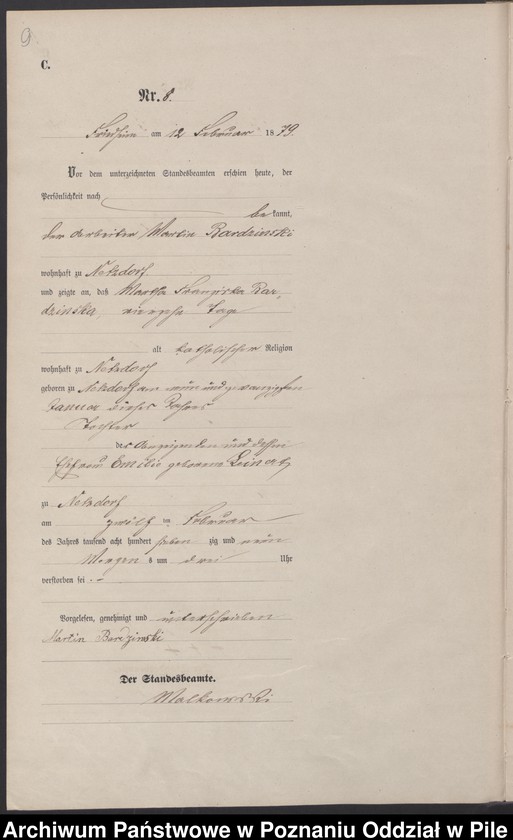 9
C.
Nr. 8.
Friedheim am 12 Februar 1879.
Vor dem unterzeichneten Standesbeamten erschien heute, der
Persönlichkeit nach
bekannt,
der Arbeiter Martin Bardzinski
wohnhaft zu Netzdorf
und zeigte an, daß Martha Franziska Bar,
dzinska, vierzehn Tage
alt katholischer Religion
wohnhaft zu Netzdorf
geboren zu Netzdorf am neun und zwanzigsten
Januar dieses Jahres
Tochter
des Anzeigenden und dessen
Ehefrau Emilie geborene
zu Netzdorf
am zwölf ten Februar
des Jahres tausend acht hundert sieben zig und neun
Morgens um drei Uhr
verstorben sei.
Vorgelesen, genehmigt und unterschrieben
Martin Bardzinski
Der Standesbeamte.
Malkowski
Archiwum Państwowe w Poznaniu Oddział w Pile